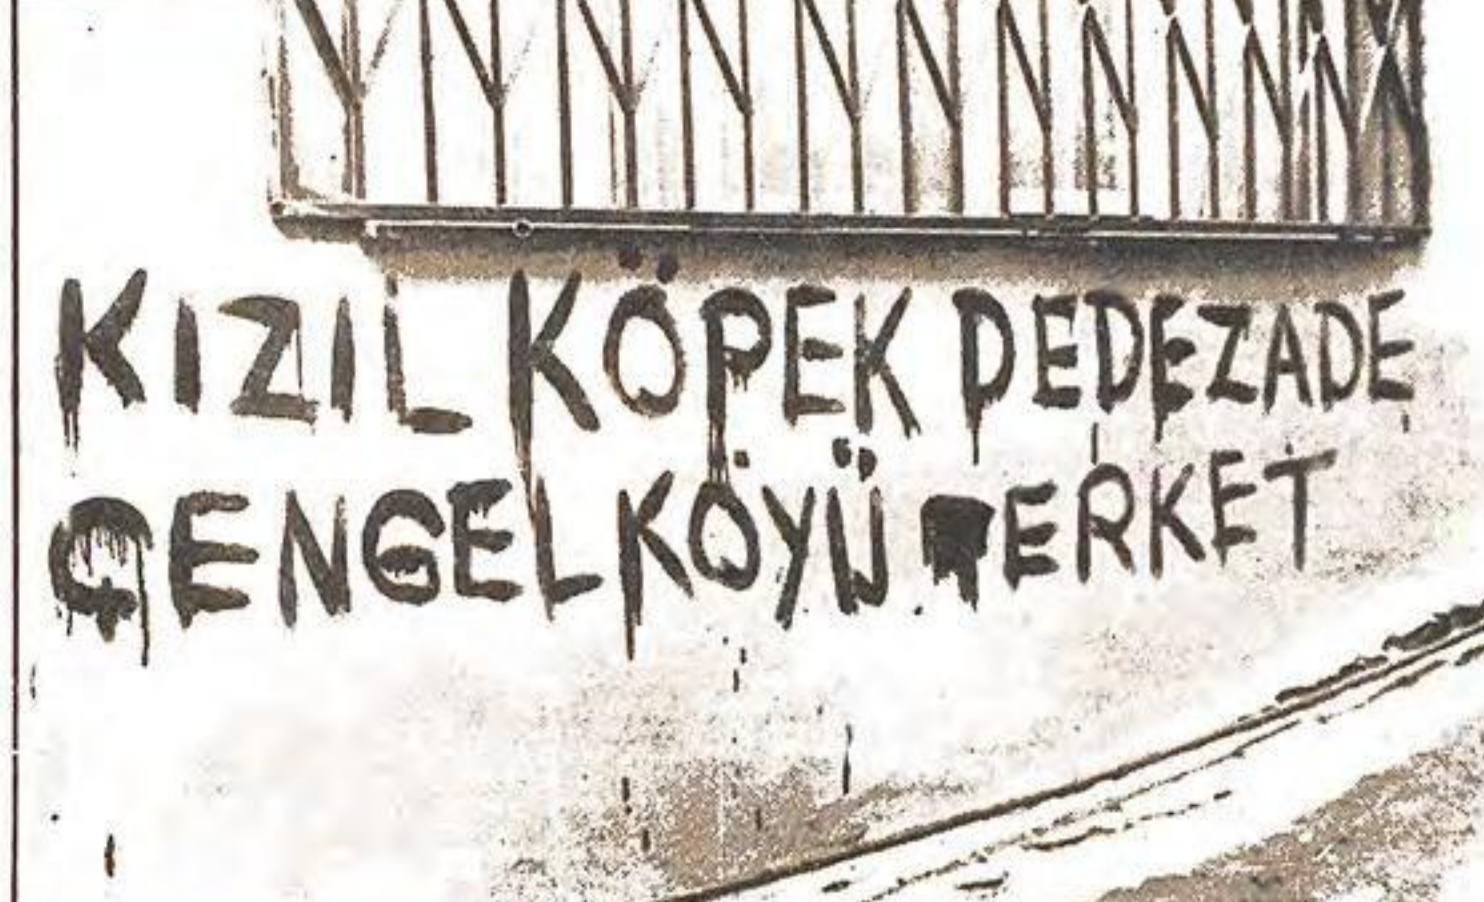 KIZIL KÖPEK DEDEZADE
ÇENGELKÖYÜ TERKET